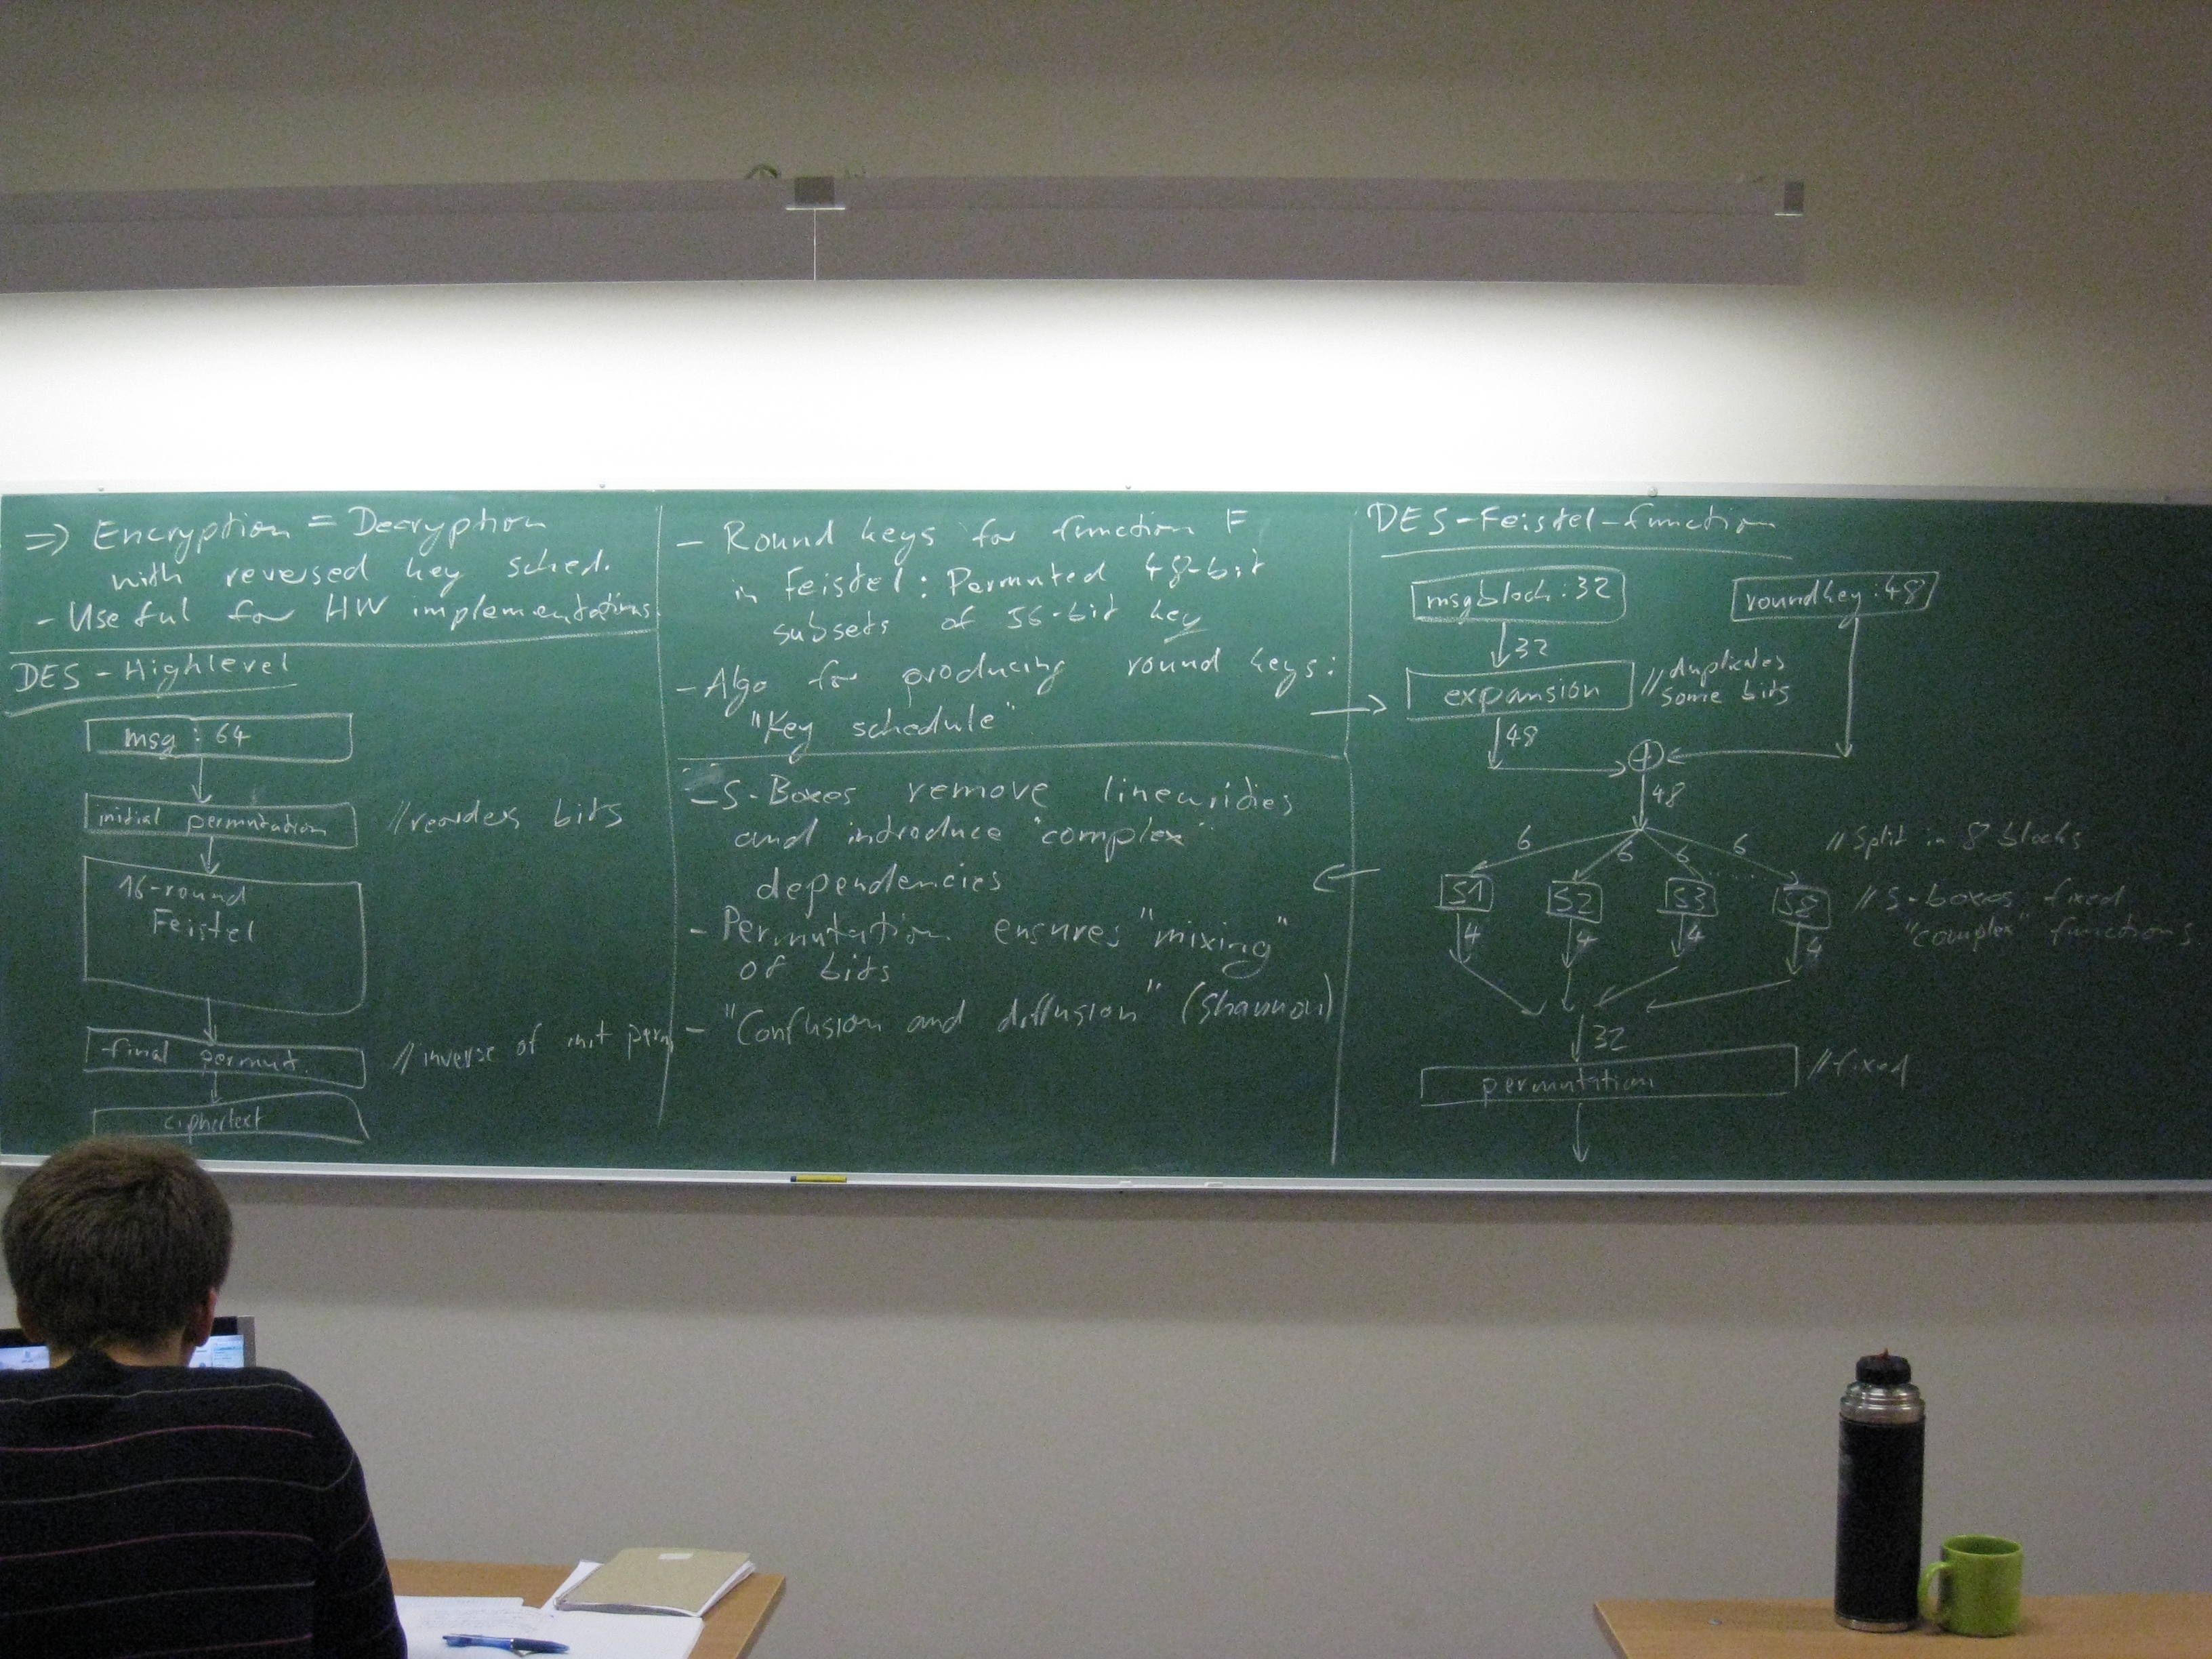 => Encryption = Decryption
with reversed key sched.
- Useful for HW implementations
DES - Highlevel
msg : 64
initial permutation
//reorders bits
16-round
Feistel
final permut.
//inverse of init perm
ciphertext
- Round keys for function F
in Feistel : Permuted 48-bit
subsets of 56-bit key
- Algo for producing round keys:
"Key schedule"
- S-Boxes remove linearities
and introduce "complex"
dependencies
- Permutation ensures "mixing"
of bits
- "Confusion and diffusion" (Shannon)
DES-Feistel-function
msgblock : 32
roundkey : 48
32
expansion
//duplicates
some bits
48
48
6 6 6 6
//Split in 8 blocks
S1 S2 S3 .... S8
//S-boxes fixed
"complex" functions
4 4 4 4
32
permutation
//fixed